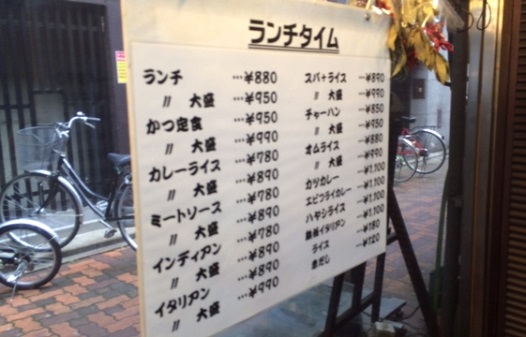 ランチタイム
ランチ …¥880
〃 大盛 …¥950
かつ定食 …¥950
〃 大盛 …¥990
カレーライス …¥780
〃 大盛 …¥890
ミートソース …¥780
〃 大盛 …¥890
インディアン …¥780
〃 大盛 …¥890
イタリアン …¥890
〃 大盛 …¥990
スパ+ライス …¥890
〃 大盛 …¥990
チャーハン …¥850
〃 大盛 …¥950
オムライス …¥880
〃 大盛 …¥990
カツカレー …¥1,100
エビフライカレー …¥1,100
ハヤシライス …¥1,100
鉄板イタリアン …¥1,100
ライス …¥180
赤だし …¥120